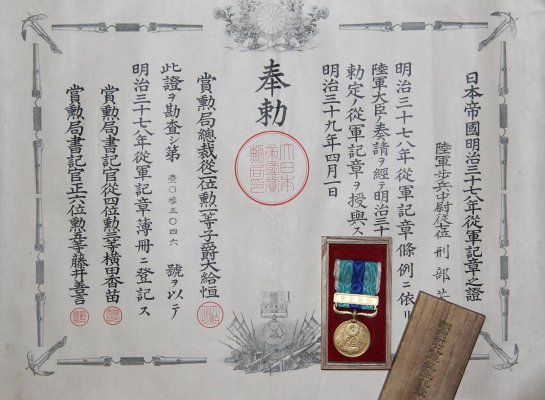 日本帝國明治三十七八年従軍記章之證
陸軍步兵中尉従七位 刑部
明治三十七八年従軍記章條例ニ依リ
陸軍大臣ノ奏請ヲ經テ明治三十
勅定ノ従軍記章ヲ授與ス
明治三十九年四月一日
奉勅
大日本帝國賞勲局印
賞勲局總裁従二位勲一等子爵大給恒
此證ヲ勘査シ第 壹〇參五〇四六 號ヲ以テ
明治三十七八年従軍記章簿冊ニ登記ス
賞勲局書記官従四位勲三等横田香苗
賞勲局書記官正六位勲五等藤井善言